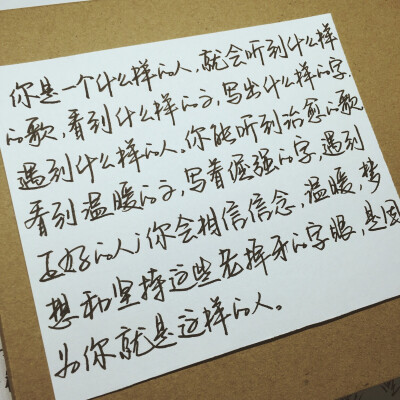 你是一个什么样的人,就会听到什么样
的歌,看到什么样的文,写出什么样的字,
遇到什么样的人。你能听到治愈的歌
看到温暖的文,写着倔强的字,遇到
正好的人;你会相信信念,温暖,梦
想和坚持这些老掉牙的字眼,是因
为你就是这样的人。